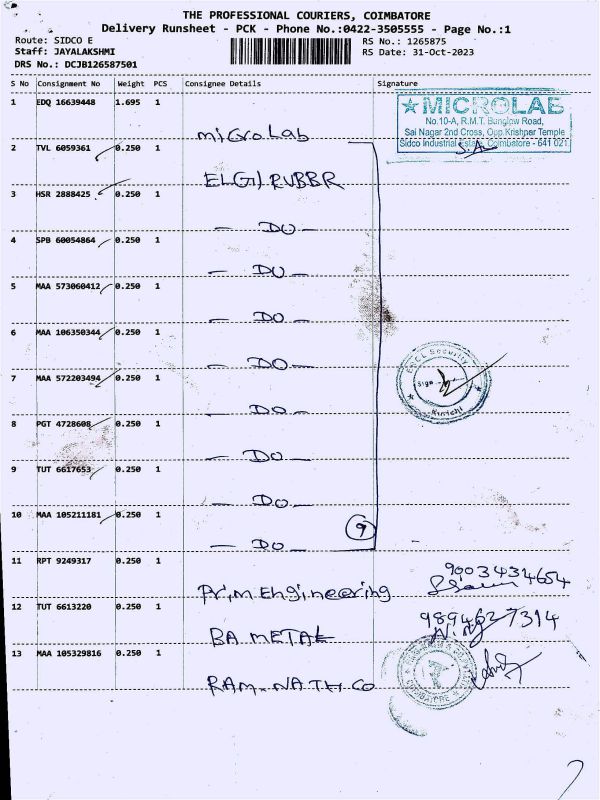 THE PROFESSIONAL COURIERS, COIMBATORE
Delivery Runsheet - PCK - Phone No.:0422-3505555 - Page No.:1
Route: SIDCO E RS No.: 1265875
Staff: JAYALAKSHMI RS Date: 31-Oct-2023
DRS No.: DCJB126587501
S No Consignment No Weight PCS Consignee Details Signature
1 EDQ 16639448 1.695 1 microLab
★ MICROLAB
No.10-A, R.M.T. Bunglow Road,
Sai Nagar 2nd Cross, Opp.Krishnar Temple
Sidco Industrial Estate, Coimbatore - 641 021
2 TVL 6059361 0.250 1 ELGI RUBBR
3 HSR 2888425 0.250 1 - DO -
4 SPB 60054864 0.250 1 - DO -
5 MAA 573060412 0.250 1 - DO -
6 MAA 106350344 0.250 1 - DO -
7 MAA 572203494 0.250 1 - DO -
Security
Sign
Kurichi
8 PGT 4728608 0.250 1 - DO -
9 TUT 6617653 0.250 1 - DO -
10 MAA 105211181 0.250 1 - DO -
9
11 RPT 9249317 0.250 1 Prim Engineering 9003434654
12 TUT 6613220 0.250 1 BA METAL 9894627314
13 MAA 105329816 0.250 1 RAM-NATH CO